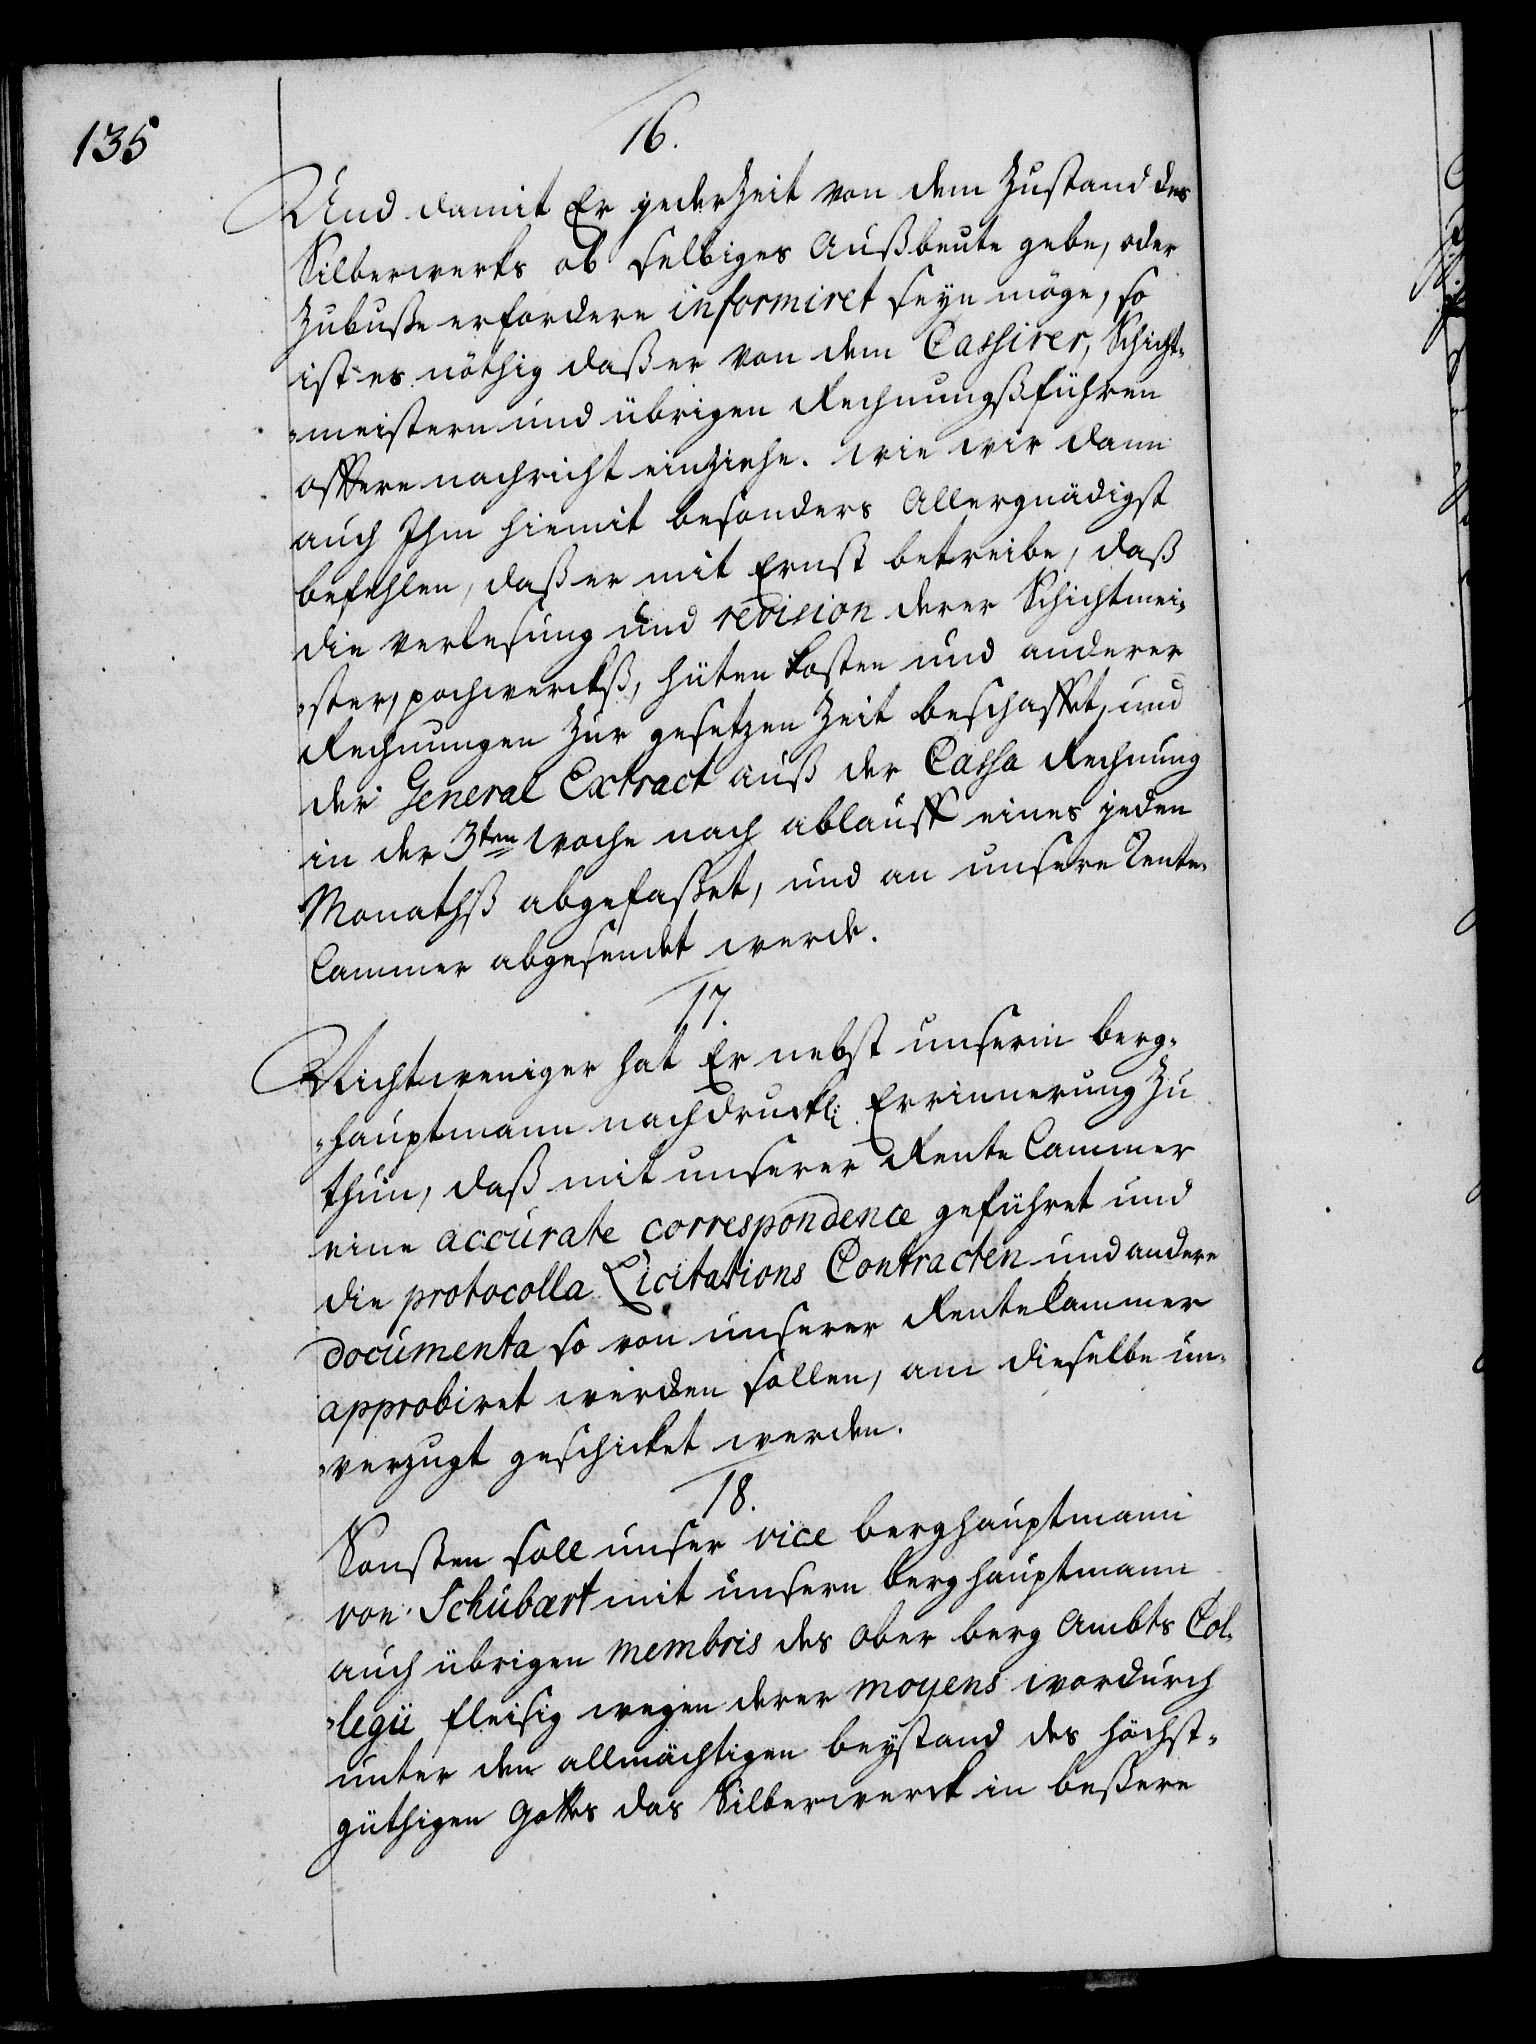 135
16.
Und damit Er jeder Zeit von dem Zustand des
Silberwerks ob selbiges Außbeute gebe, oder
Zubuße erfordere informiret seyn möge, so
ist es nöthig daß er von dem Cassirer, Schicht-
-meistern und übrigen Rechnungsführen
offtere nachricht einziehe. wie wir dann
auch Ihm hiemit besonders Allergnädigst
befehlen, daß er mit Ernst betreibe, daß
die verlesung und revision derer Schichtmei-
-ster, pochwercks, hüten kosten und anderer
Rechnungen zur gesetzen Zeit beschaffet, und
der General Extract auß der Cassa Rechnung
in der 3ten woche nach ablauff eines jeden
Monathß abgefaßet, und an unsere Rente-
Cammer abgesendet werde.
17.
Nicht weniger hat Er nebst unserm berg-
-hauptmann nachdruckl: Errinnerung zu
thun, daß mit unserer Rente Cammer
eine accurate correspondence geführet und
die protocolla Licitations Contracten und andere
documenta so von unserer Rentekammer
approbiret werden sollen, am dieselbe un-
-verzugt geschicket werden.
18.
Sonsten soll unser vice berghauptmann
von Schubart mit unsern berghauptmann
auch übrigen membris des Ober berg Ambts Col-
-legii fleisig wegen derer moyens wordurch
unter den allmächtigen beystand des höchst-
güthigen Gottes das Silberwerck in beßere